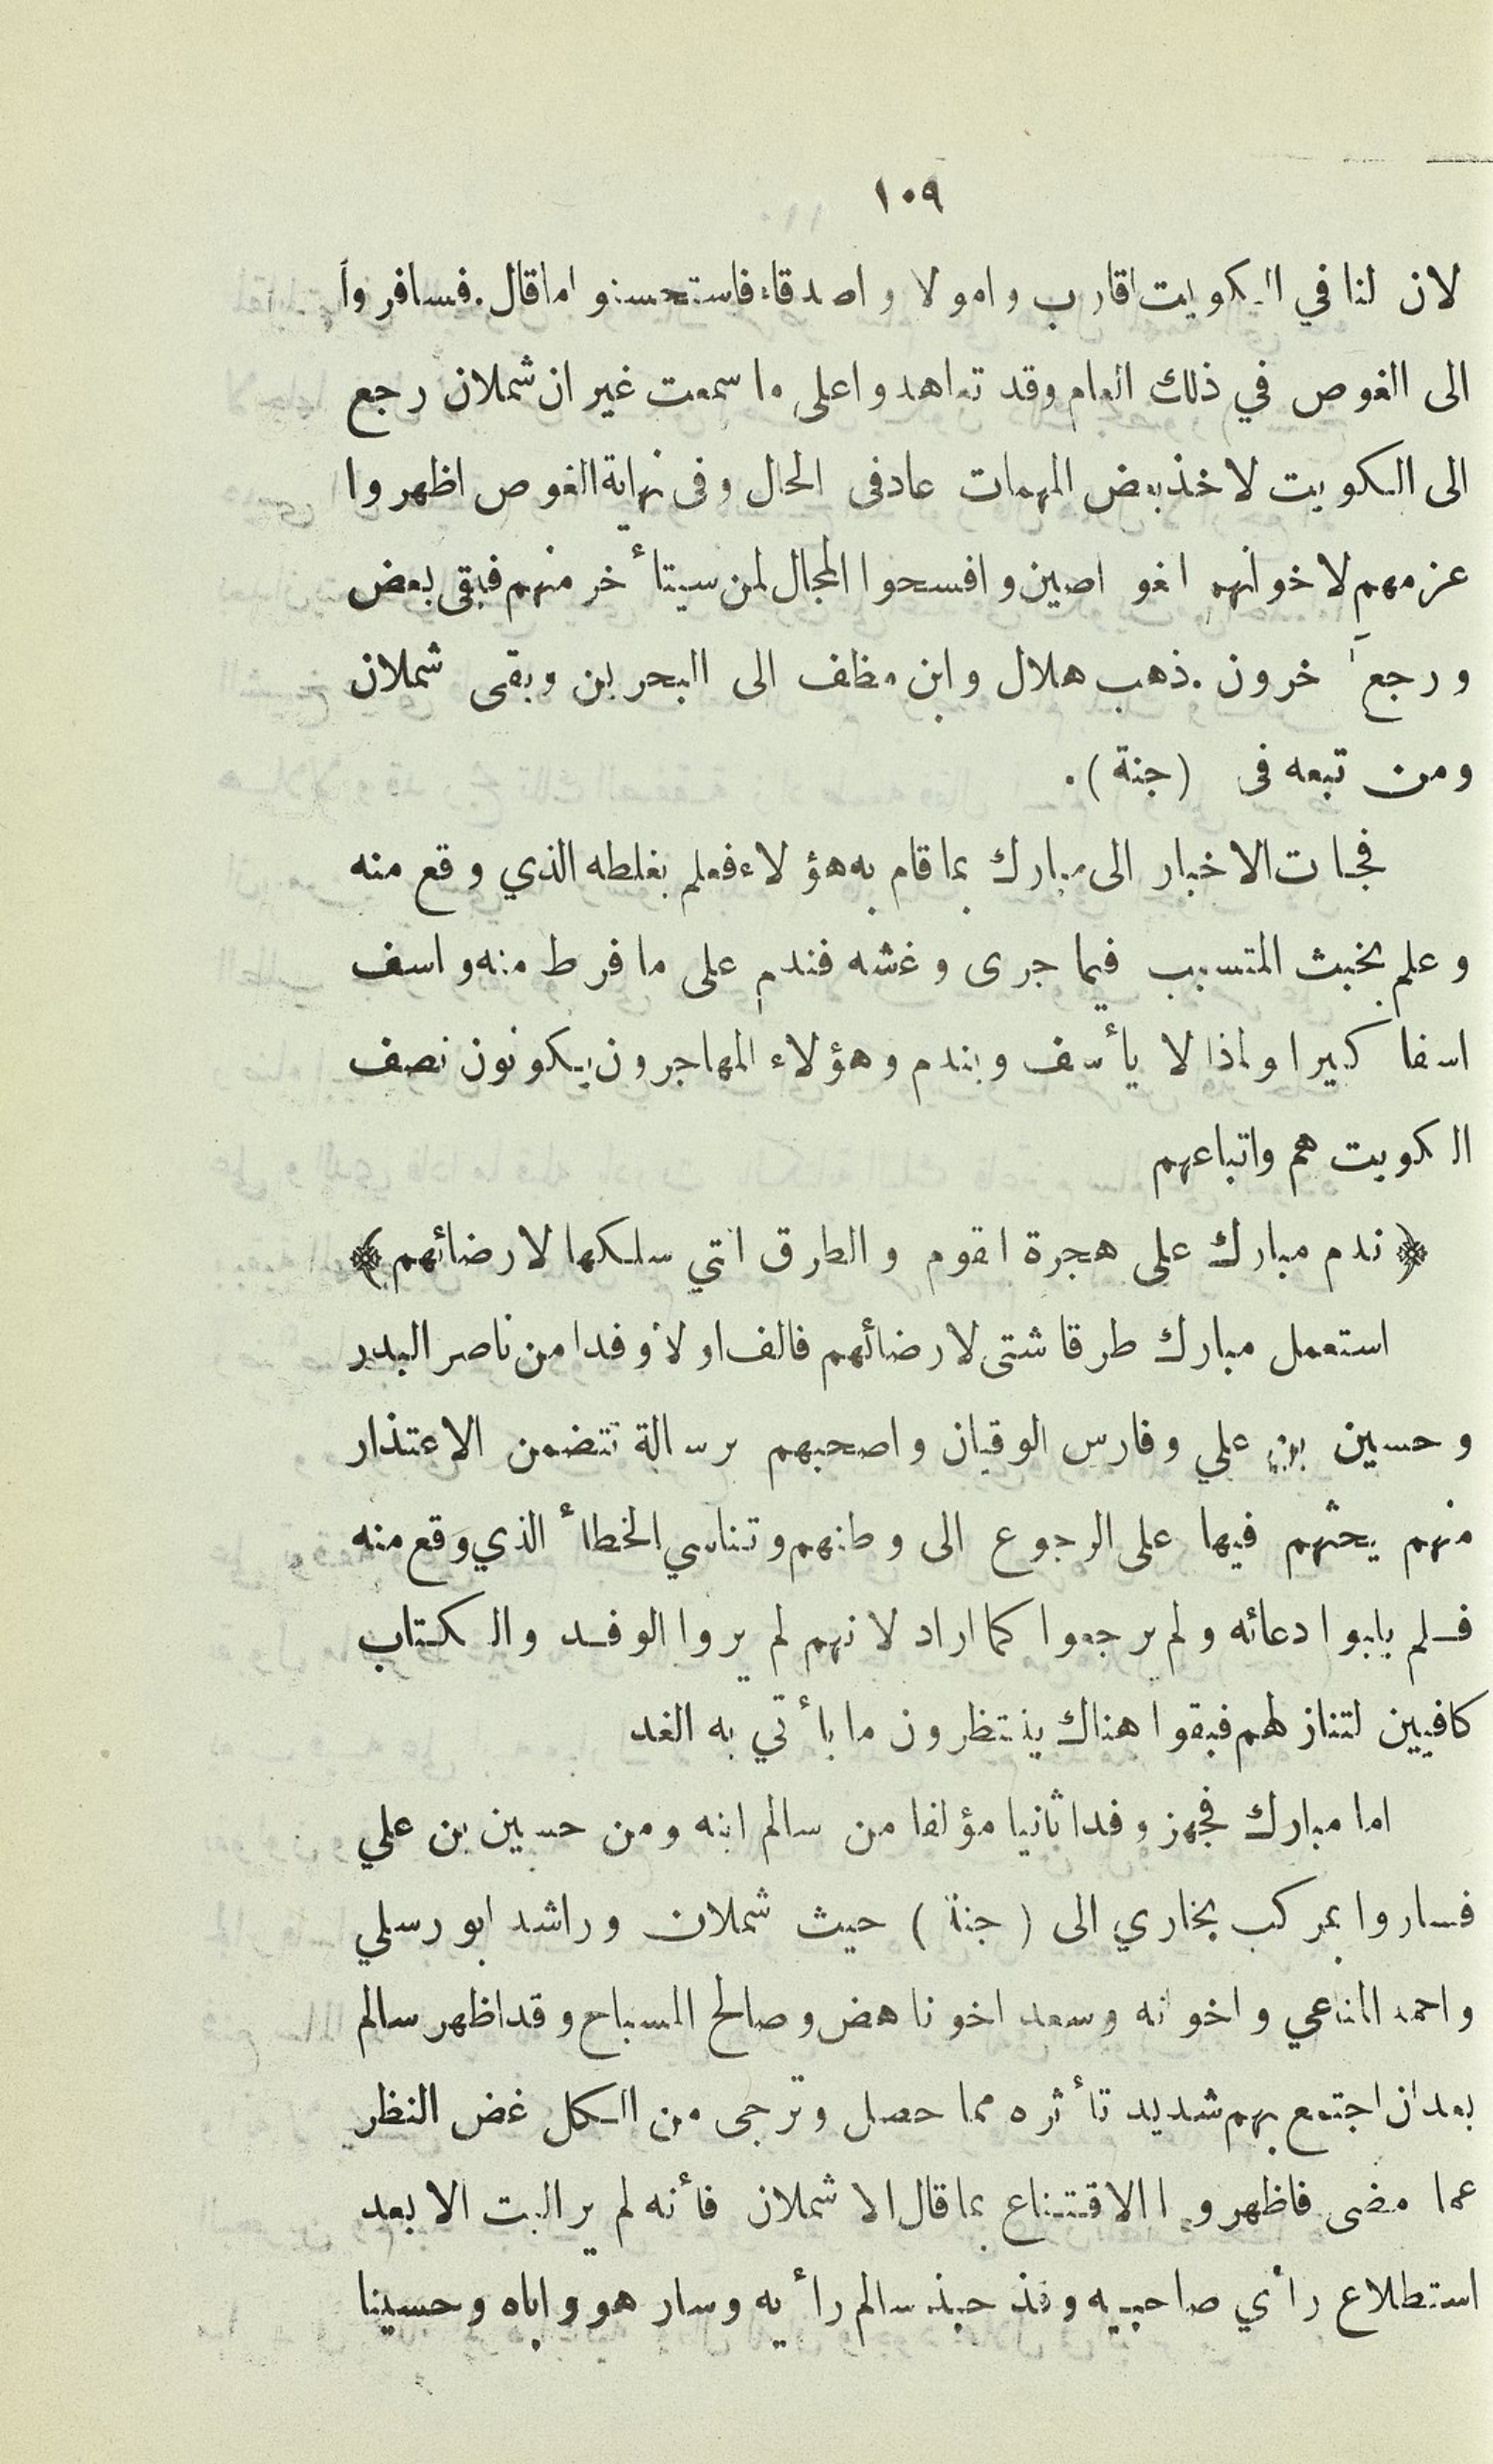 ١٠٩
لان لنا في الكويت اقارب واموالا واصدقاء فاستحسنوا ما قال. فسافروا
الى الغوص في ذلك العام وقد تعاهدوا على ما سمعت غير ان شملان رجع
الى الكويت لاخذ بعض المهمات عاد فى الحال وفى نهاية الغوص اظهروا
عزمهم لاخوانهم الغواصين وافسحوا المجال لمن سيتأخر منهم فبقى بعض
ورجع آخرون. ذهب هلال وابن مظف الى البحرين وبقى شملان
ومن تبعه فى (جنة).
فجات الاخبار الى مبارك بما قام به هؤلاء فعلم بغلطه الذي وقع منه
وعلم بخبث المتسبب فيما جرى وغشه فندم على ما فرط منه واسف
اسفا كبيرا ولماذا لا يأسف ويندم وهؤلاء المهاجرون يكونون نصف
الكويت هم واتباعهم
﴿ ندم مبارك على هجرة القوم والطرق التي سلكها لارضائهم ﴾
استعمل مبارك طرقا شتى لارضائهم فالف اولا وفدا من ناصر البدر
وحسين بن علي وفارس الوقيان واصحبهم برسالة تتضمن الاعتذار
منهم يحثهم فيها على الرجوع الى وطنهم وتناسي الخطأ الذي وقع منه
فلم يلبوا دعائه ولم يرجعوا كما اراد لانهم لم يروا الوفد والكتاب
كافيين لتنازلهم فبقوا هناك ينتظرون ما يأتي به الغد
اما مبارك فجهز وفدا ثانيا مؤلفا من سالم ابنه ومن حسين بن علي
فساروا بمركب بخاري الى (جنة) حيث شملان وراشد ابو رسلي
واحمد المناعي واخوانه وسعد اخو ناهض وصالح المسباح وقد اظهر سالم
بعد ان اجتمع بهم شديد تأثره مما حصل وترجى من الكل غض النظر
عما مضى فاظهروا الاقتناع بما قال الا شملان فأنه لم ير البت الا بعد
استطلاع رأي صاحبيه وقد حبذ سالم رأيه وسار هو واياه وحسينا